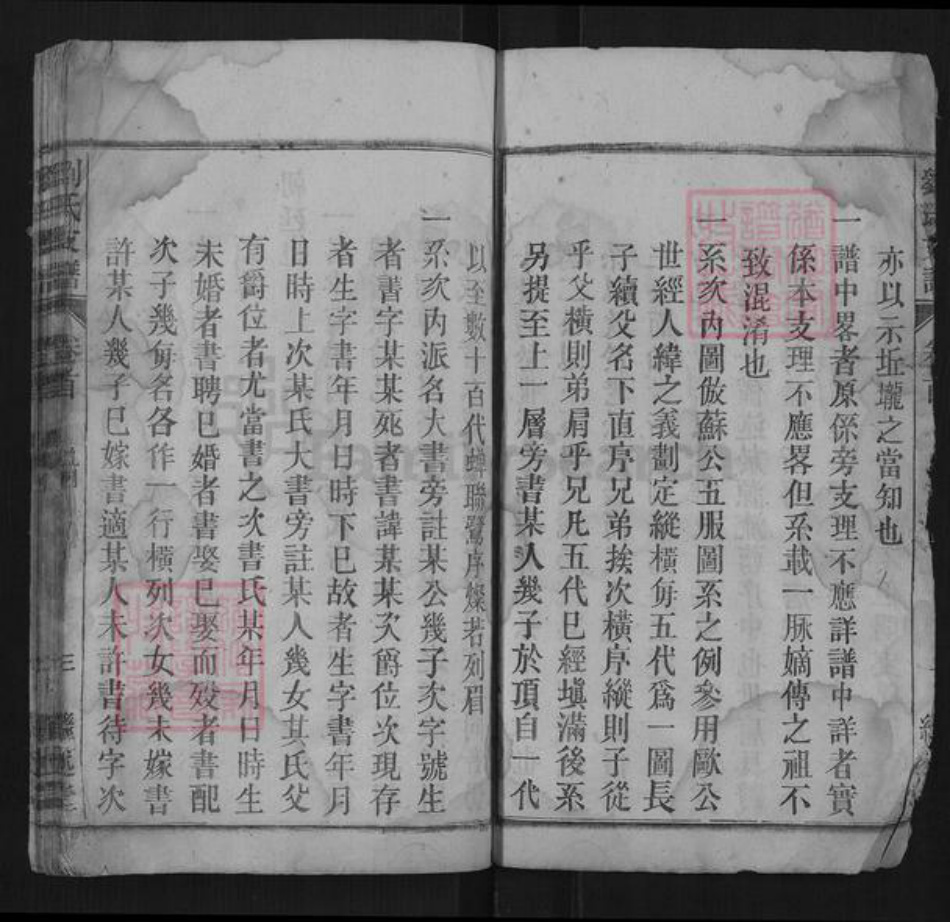 亦以示坵壠之當知也
一譜中畧者原係旁支理不應詳譜中詳者實
係本支理不應畧但系載一脉嫡傳之祖不
致混淆也
一系次內圖倣蘇公五服圖系之例參用歐公
世經人緯之義劃定縱橫每五代爲一圖長
子續父名下直序兄弟挨次橫序縱則子從
乎父橫則弟肩乎兄凡五代已經塡滿後系
另提至上一層旁書某人幾子於項自一代
以至數十百代蟬聯鷺序燦若列眉
一系次內派名大書旁註某公幾子次字號生
者書字某某死者書諱某某次爵位次現存
者生字書年月日時下已故者生字書年月
日時上次某氏大書旁註某人幾女其氏父
有爵位者尤當書之次書氏某年月日時生
未婚者書聘已婚者書娶已娶而歿者書配
次子幾每名各作一行橫列次女幾未嫁書
許某人幾子已嫁書適某人未許書待字次
劉氏支譜
卷首
三
FamilySearch